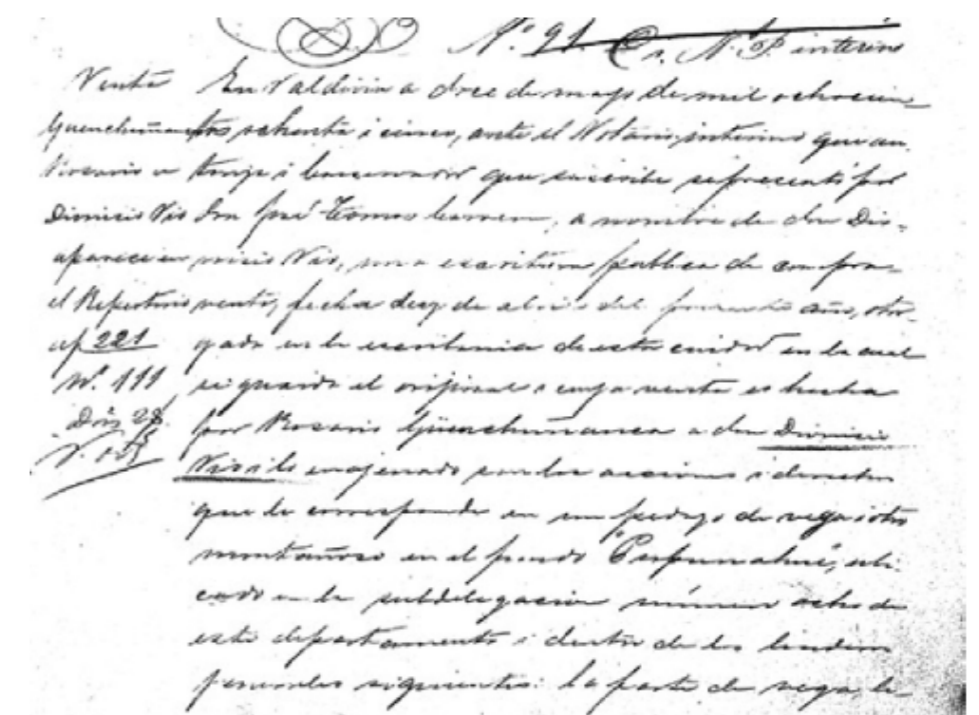 Nº 91. N. P. interino
Venta
Guenchumanca
Rosario a
Dionicio Vio
aparece en
el Repertorio
af 221
Nº. 111
En Valdivia a doce de mayo de mil ochocien-
tos ochenta i cinco, ante el Notario interino que au-
toriza i Conservador que suscribe se presentó por
don José Tomas Carrera, a nombre de don Dio-
nicio Vio, una escritura publica de compra-
venta, fecha diez de abril del presente año, otor-
gada en la escribania de esta ciudad en la cual
se guarda el orijinal i cuya venta es hecha
por Rosario Güenchumanca a don Dionicio
Vio i lo enajenado son las acciones i derechos
que le corresponde en un pedazo de vega i otro
montañoso en el fundo ubi-
cado en la subdelegacion número ocho de
este departamento i dentro de los linderos
jenerales siguientes: la parte de vega li-